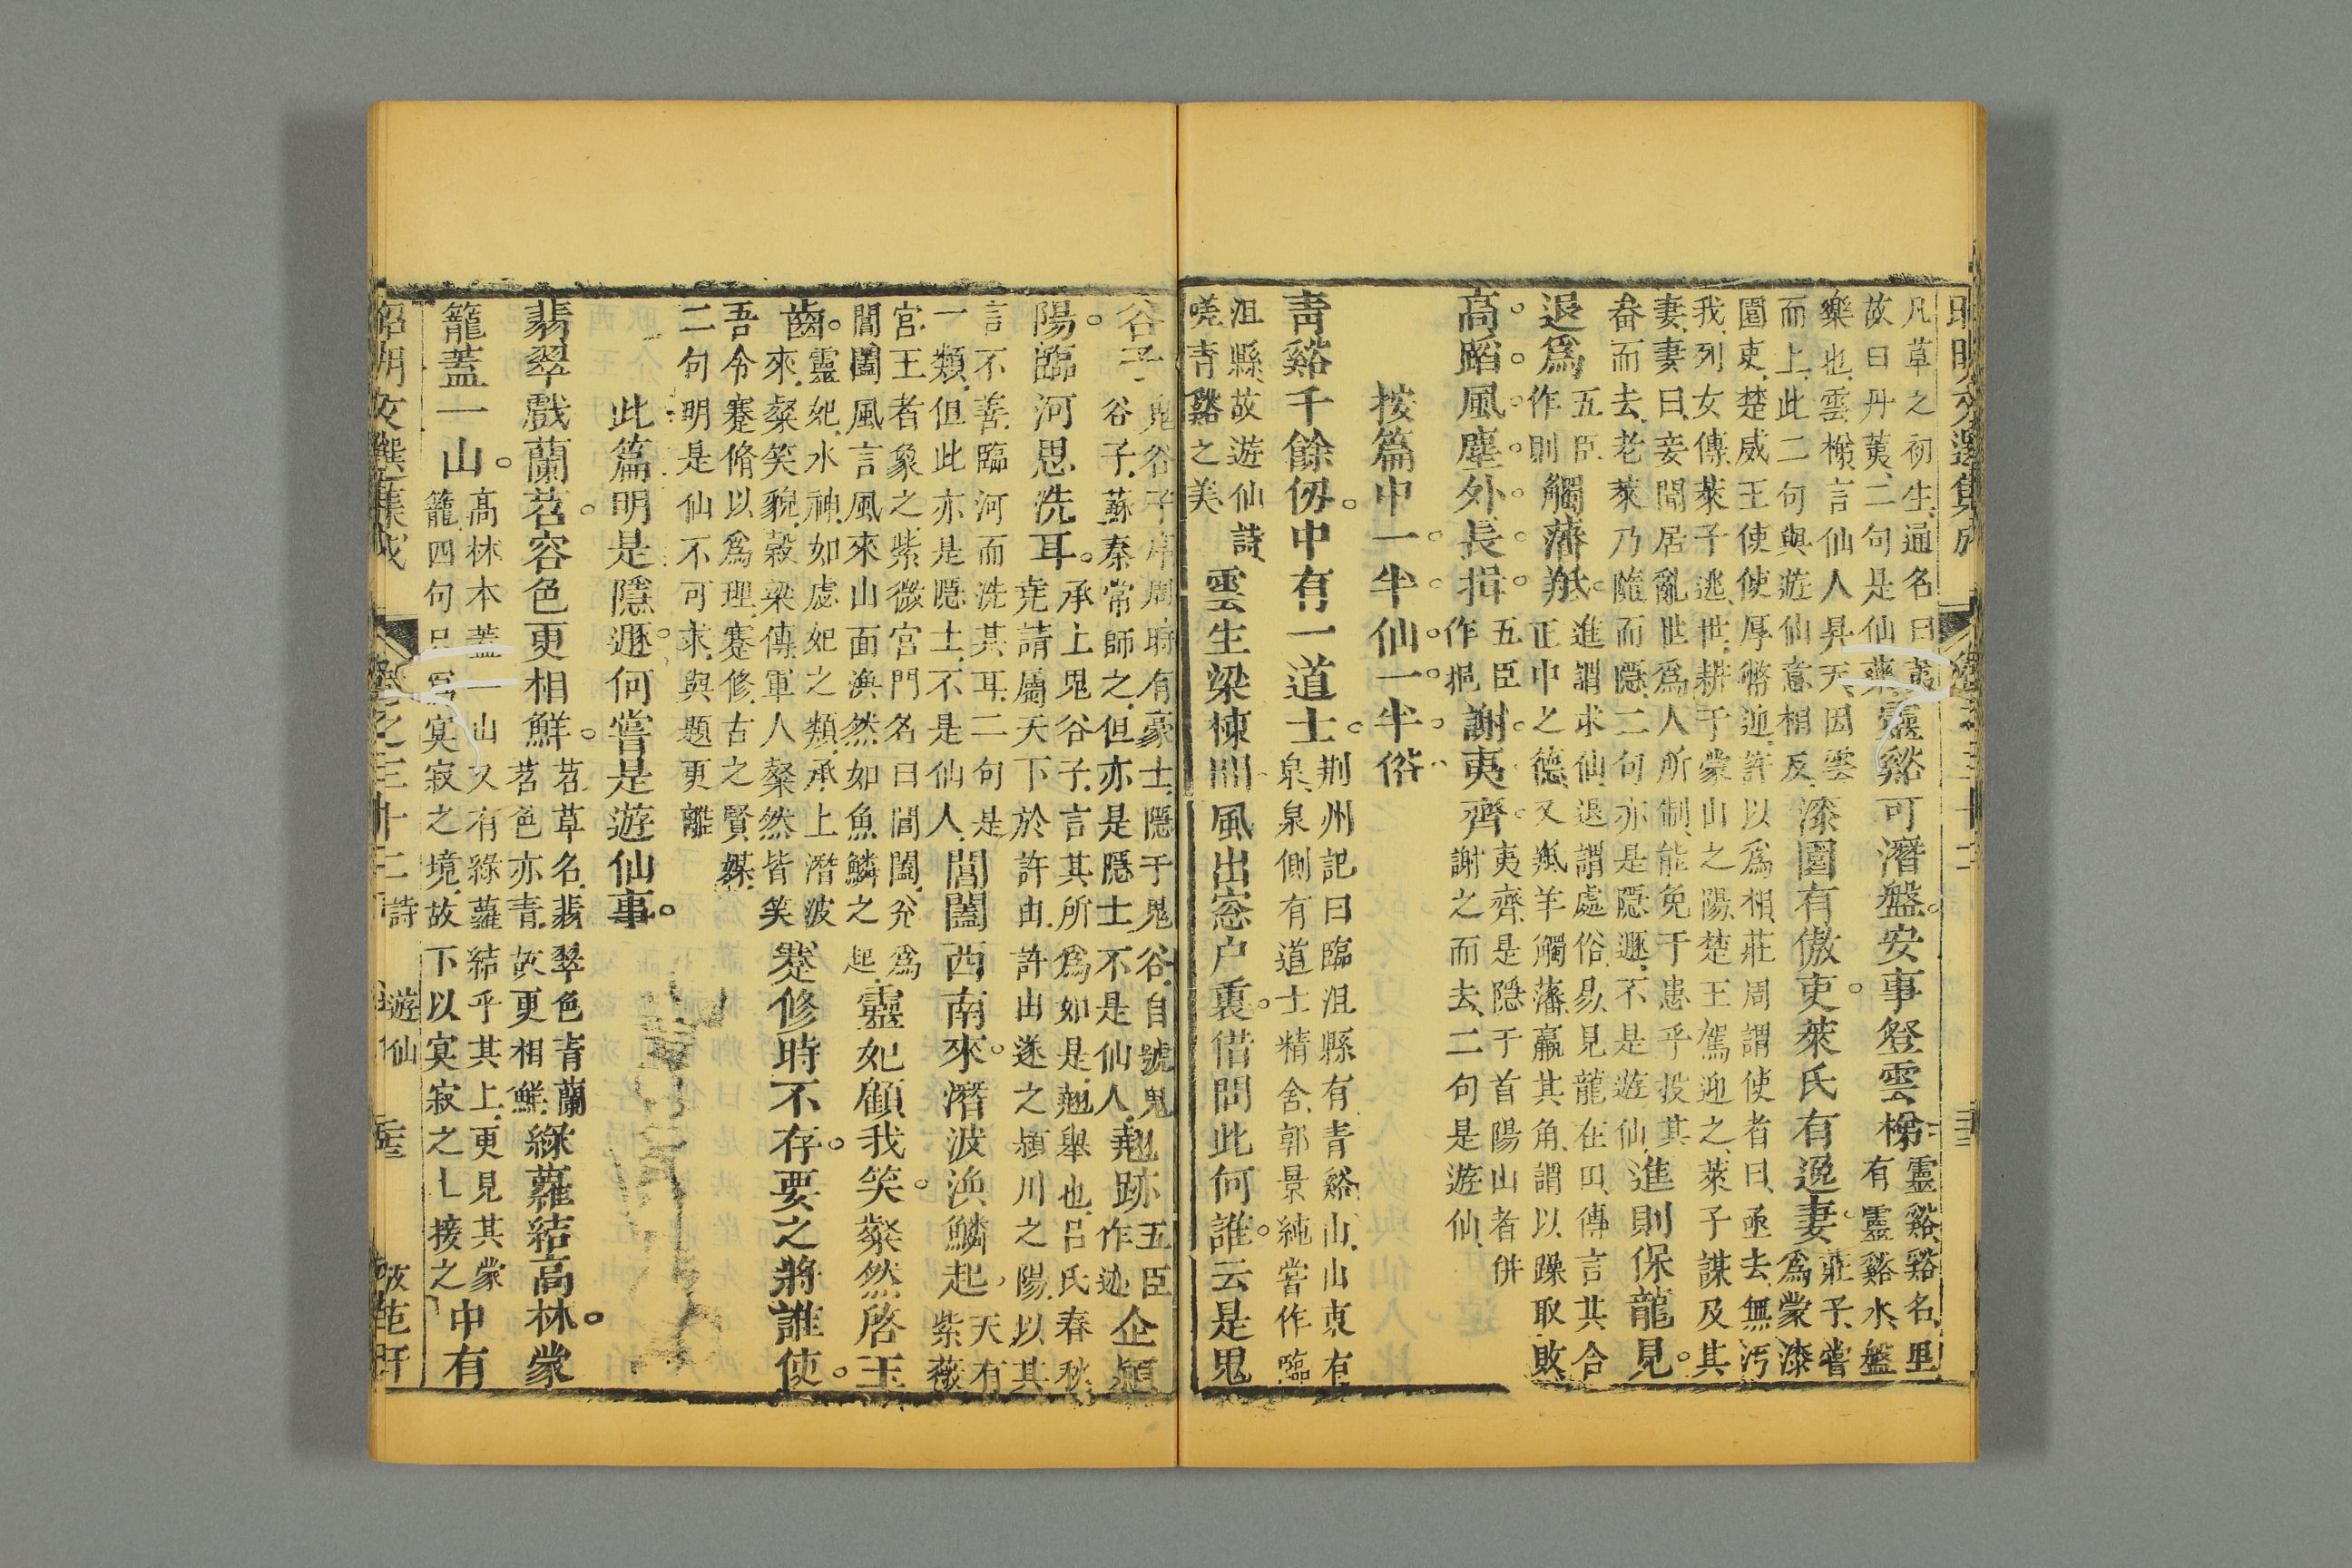 昭明文選集成
凡草之初生通名曰荑
故曰丹荑二句是仙藥
靈谿可潛盤。安事登雲梯
靈谿谿名里
有靈谿水盤
樂也雲梯言仙人昇天因雲
而上此二句與遊仙意相反
漆園有傲吏。萊氏有逸妻
莊子嘗
爲蒙漆
園吏楚威王使使厚幣迎許以爲相莊周謂使者曰亟去無汚
我列女傳萊子逃世耕于蒙山之陽楚王駕迎之萊子謀及其
妻妻曰妾聞居亂世爲人所制能免于患乎投其
畚而去老萊乃隨而隱二句亦是隱遯不是遊仙
進則保龍見。
退爲
五臣
作則
觸藩羝。
進謂求仙退謂處俗易見龍在田傳言其合
正中之德又羝羊觸藩羸其角謂以躁取敗
高蹈風塵外。長揖
五臣
作挹
謝夷齊。
夷齊是隱于首陽山者併
謝之而去二句是遊仙
按篇中一半仙。一半俗
青谿千餘仞。中有一道士。
荆州記曰臨沮縣有青谿山山東有
泉泉側有道士精舍郭景純嘗作臨
沮縣故遊仙詩
嗟青谿之美
雲生梁棟間。風出窓户裏。借問此何誰。云是鬼
谷子。
鬼谷子序周時有豪士隱于鬼谷自號鬼
谷子蘇秦常師之但亦是隱士不是仙人
翹跡
五臣
作迹
企潁
陽。臨河思洗耳。
承上鬼谷子言其所爲如是翹舉也吕氏春秋
堯請屬天下於許由許由遂之潁川之陽以其
言不善臨河而洗其耳二句是
一類但此亦是隱士不是仙人
閶闔西南來。潛波渙鱗起。
天有
紫薇
宮王者象之紫微宮門名曰閶闔兊爲
閶闔風言風來山面渙然如魚鱗之起
靈妃顧我笑。粲然啓玉
齒。
靈妃水神如虙妃之類承上潛波
來粲笑貌穀梁傳軍人粲然皆笑
蹇修時不存。要之將誰使。
吾令蹇脩以爲理蹇修古之賢媒
二句明是仙不可求與題更離
此篇明是隱遯。何嘗是遊仙事。
翡翠戲蘭苕。容色更相鮮。
苕草名翡翠色青蘭
苕色亦青故更相鮮
綠蘿結高林。蒙
籠蓋一山。
高林木蓋一山又有綠蘿結乎其上更見其蒙
籠四句只寫寞寂之境故下以寞寂之士接之
中有
昭明文選集成
卷之三十二
詩
遊仙